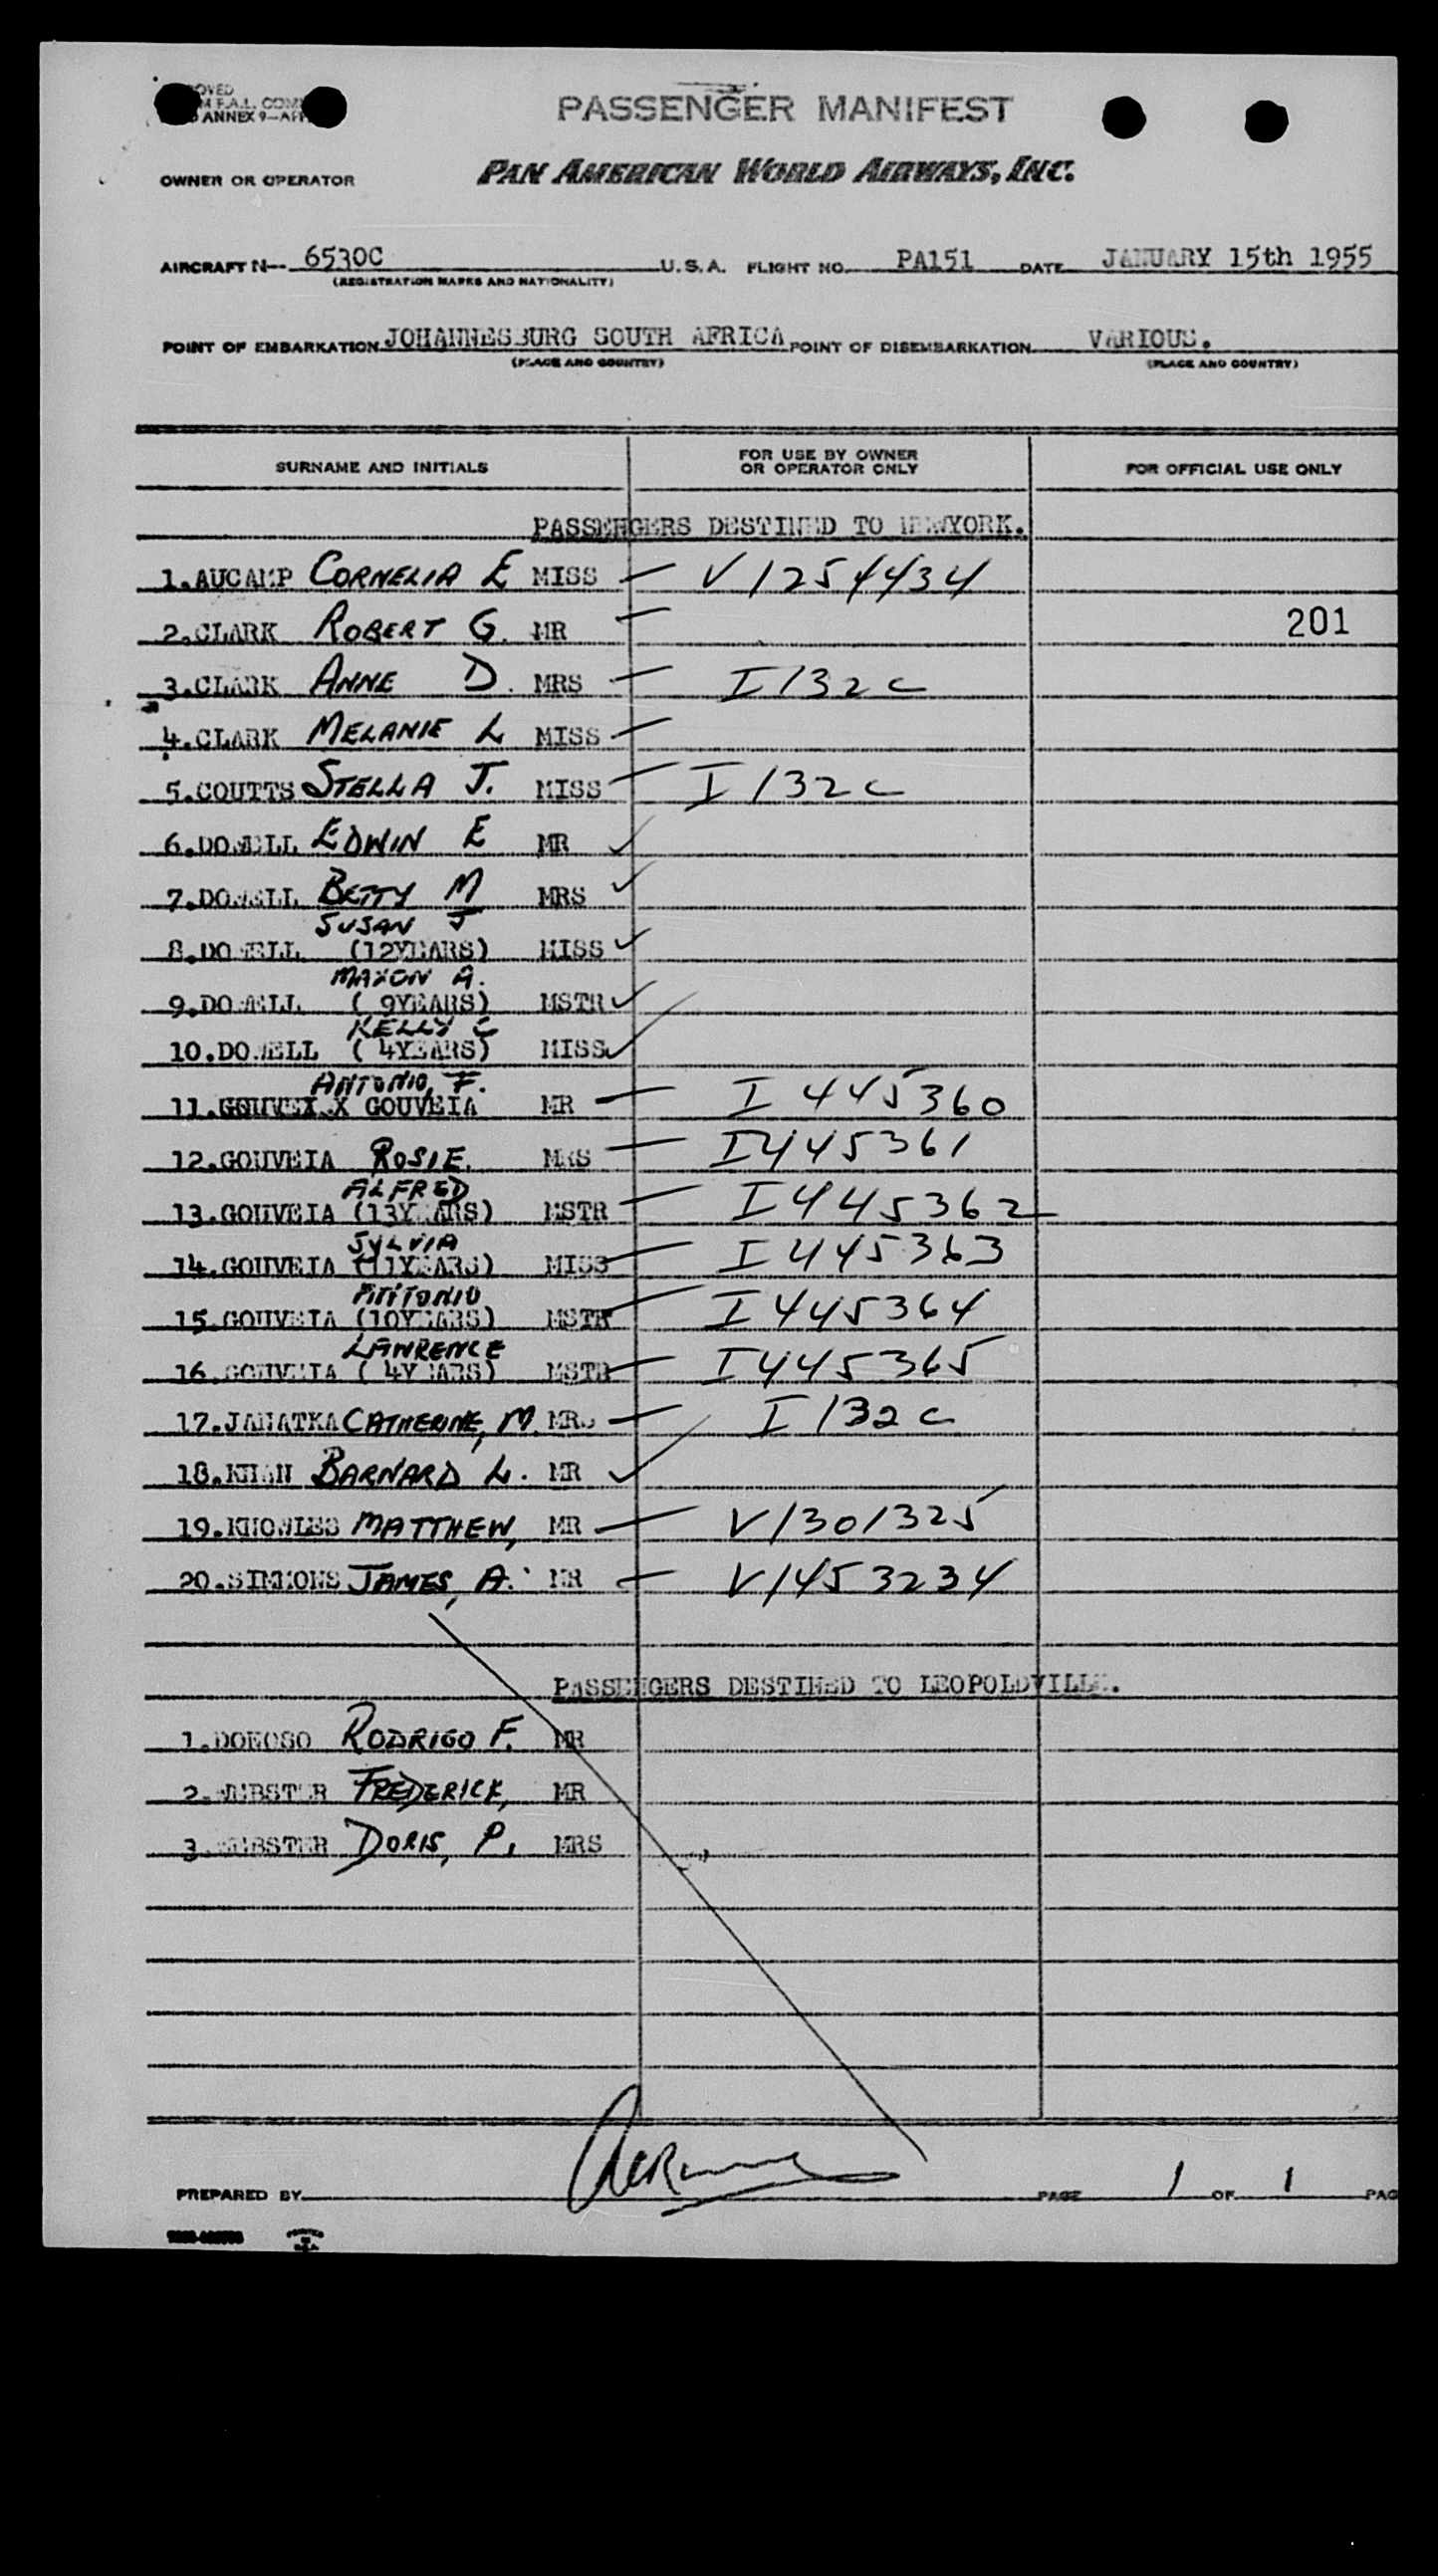 PASSENGER MANIFEST
ANNEX 9
OWNER OR OPERATOR PAN AMERICAN WORLD AIRWAYS, INC.
AIRCRAFT N-- 6530C U.S.A. FLIGHT NO. PA151 DATE JANUARY 15th 1955
(REGISTRATION MARKS AND NATIONALITY)
POINT OF EMBARKATION JOHANNESBURG SOUTH AFRICA POINT OF DISEMBARKATION VARIOUS.
(PLACE AND COUNTRY) (PLACE AND COUNTRY)
SURNAME AND INITIALS FOR USE BY OWNER OR OPERATOR ONLY FOR OFFICIAL USE ONLY
PASSENGERS DESTINED TO NEWYORK.
1.AUCAMP CORNELIA E MISS — V1254434
2.CLARK ROBERT G. MR — 201
3.CLARK ANNE D. MRS — I132C
4.CLARK MELANIE L MISS —
5.COUTTS STELLA J. MISS — I132C
6.DOWELL EDWIN E MR ✓
7.DOWELL BETTY M MRS ✓
SUSAN J
8.DOWELL (12YEARS) MISS ✓
MAXON A.
9.DOWELL ( 9YEARS) MSTR ✓
KELLY C
10.DOWELL ( 4YEARS) MISS ✓
ANTONIO, F.
11. GOUVEIA MR — I445360
12.GOUVEIA ROSIE. MRS — I445361
ALFRED
13.GOUVEIA (13YEARS) MSTR — I445362
SYLVIA
14.GOUVEIA (11YEARS) MISS — I445363
ANTONIO
15.GOUVEIA (10YEARS) MSTR — I445364
LAWRENCE
16.GOUVEIA ( 4YEARS) MSTR — I445365
17.JANATKA CATHERINE, M. MRS — I132C
18.KHAN BARNARD L. MR ✓
19.KNOWLES MATTHEW, MR — V1301325
20.SIMMONS JAMES, A. MR — V1453234
PASSENGERS DESTINED TO LEOPOLDVILLE.
1.DONOSO RODRIGO F. MR
2.WEBSTER FREDERICK, MR
3.WEBSTER DORIS, P, MRS
PREPARED BY PAGE 1 OF 1 PAG